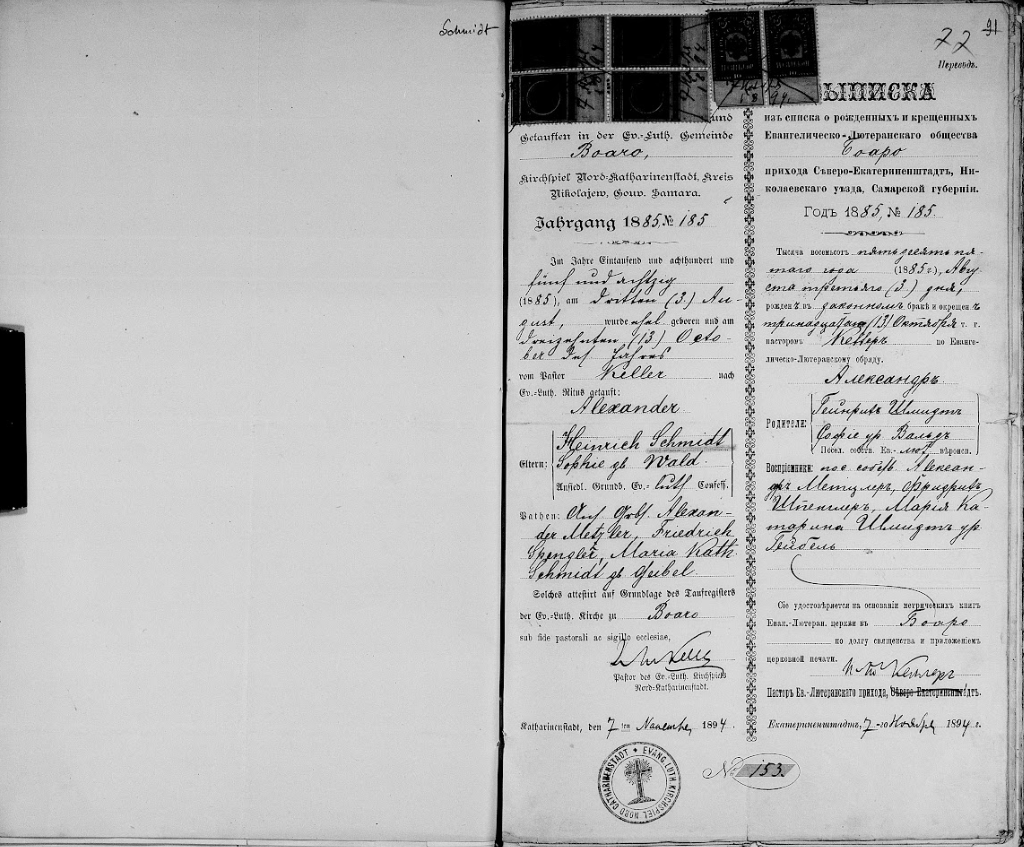 Schmidt
91
77
Переводъ.
und
Getauften in der Ev.-Luth. Gemeinde
Boaro,
Kirchspiel Nord-Katharinenstadt, Kreis
Nikolajew, Gouv. Samara.
Jahrgang 1885, № 185
Im Jahre Eintausend und achthundert und
fünf und achtzig
(1885), am dritten (3.) Au-
gust, wurde ehel. geboren und am
dreizehnten (13) Octo-
ber des Jahres
vom Pastor Keller nach
Ev.-Luth. Ritus getauft:
Alexander
Eltern:
Heinrich Schmidt
Sophie gb Wald
Ansiedl. Grundb. Ev.-luth Confess.
Pathen: Alexan-
der Metzler, Friedrich
Spengler, Maria Kath
Schmidt gb Geibel
Solches attestirt auf Grundlage des Taufregisters
der Ev.-Luth. Kirche zu Boaro
sub fide pastorali ac sigillo ecclesiae,
Pastor des Ev.-Luth. Kirchspiels
Nord-Katharinenstadt.
Katharinenstadt, den 7 ten November 1894.
EVANG. LUTH. KIRCHSPIEL NORD CATHARINENSTADT
ВЫПИСКА
изъ списка о рожденныхъ и крещенныхъ
Евангелическо-Лютеранскаго общества
Боаро
прихода Сѣверо-Екатериненштадтъ, Ни-
колаевскаго уѣзда, Самарской губерніи.
Годъ 1885, № 185.
Тысяча восемьсотъ пятьдесять пя-
таго года (1885 г.), Авгу
ста третьяго (3.) дня,
рожденъ въ законномъ бракѣ и окрещенъ
тринадцатаго (13) Октября т. г.
пасторомъ Келлеръ по Еванге-
лическо-Лютеранскому обряду.
Александръ
Родители:
Гейнрихъ Шмидтъ
Софіе ур. Вальдъ
Посел. собств. Ев.-лют. вѣроисп.
Воспріемники: пос. собств. Алексан-
дръ Метцлеръ, Фридрихъ
Шпенглеръ, Марія Ка-
тарина Шмидтъ ур.
Гейбель
Сіе удостовѣряется на основаніи метрическихъ книгъ
Еван.-Лютеран. церкви въ Боаро
по долгу священства и приложеніемъ
церковной печати.
Келлеръ
Пасторъ Ев.-Лютеранскаго прихода, Сѣверо-Екатериненштадтъ.
Екатериненштадтъ, 7-го Ноября 1894 г.
№ 153.